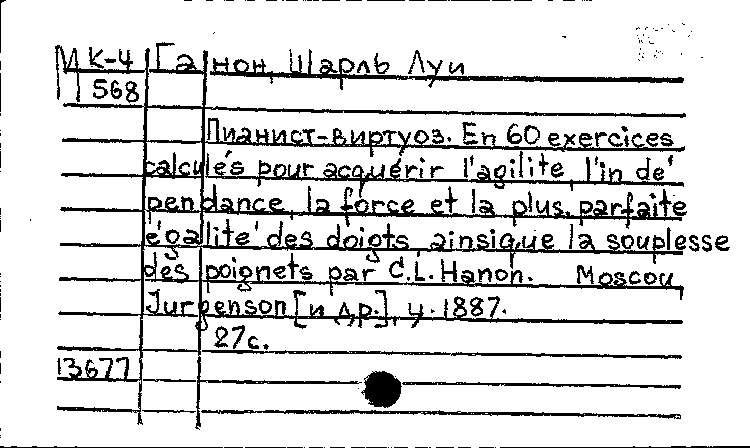 МК-4 Ганон, Шарль Луи
568
Пианист-виртуоз. En 60 exercices
calculés pour acquérir l'agilite, l'in dé
pendance, la force et la plus. parfaite
égalité des doigts, ainsique la souplesse
des poignets par C.L. Hanon. Moscou,
Jurgenson [и др.], ц. 1887.
27с.
13677